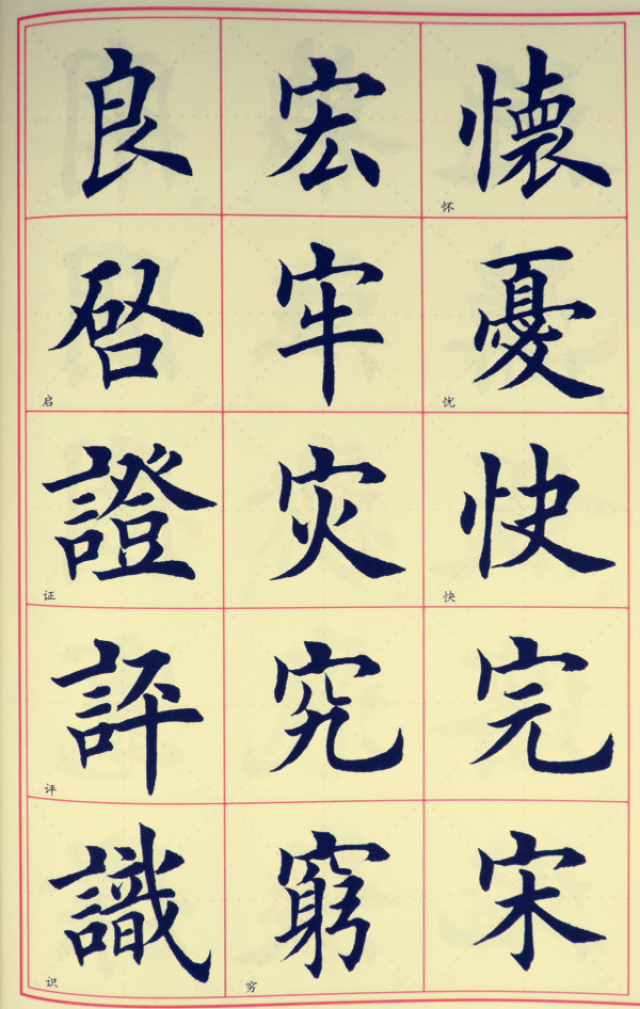 懷怀憂忧快快完宋
宏牢灾究窮穷
良啓启證证評评識识